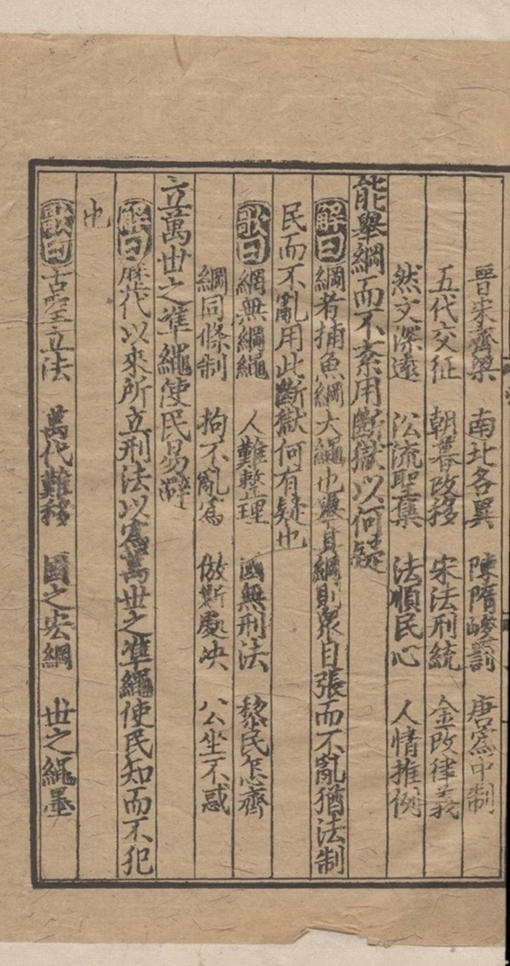 晋宋齊梁　南北各異　陳隋嵾罰　唐爲中制
五代交征　朝暮改移　宋法刑統　金改律義
然文深遠　㳂流聖集　法順民心　人情推例
能舉綱而不紊用斷獄以何疑
解曰綱者捕魚綱大繩也舉其綱則衆目張而不亂猶法制
民而不亂用此斷獄何有疑也
歌曰網無綱繩　人難整理　國無刑法　黎民怎齊
綱同條制　拘不亂爲　倣斯處决　公坐不惑
立萬世之准繩使民易避
解曰歷代以來所立刑法以爲萬世之準繩使民知而不犯
也
歌曰古聖立法　萬代難移　國之宏綱　世之繩墨